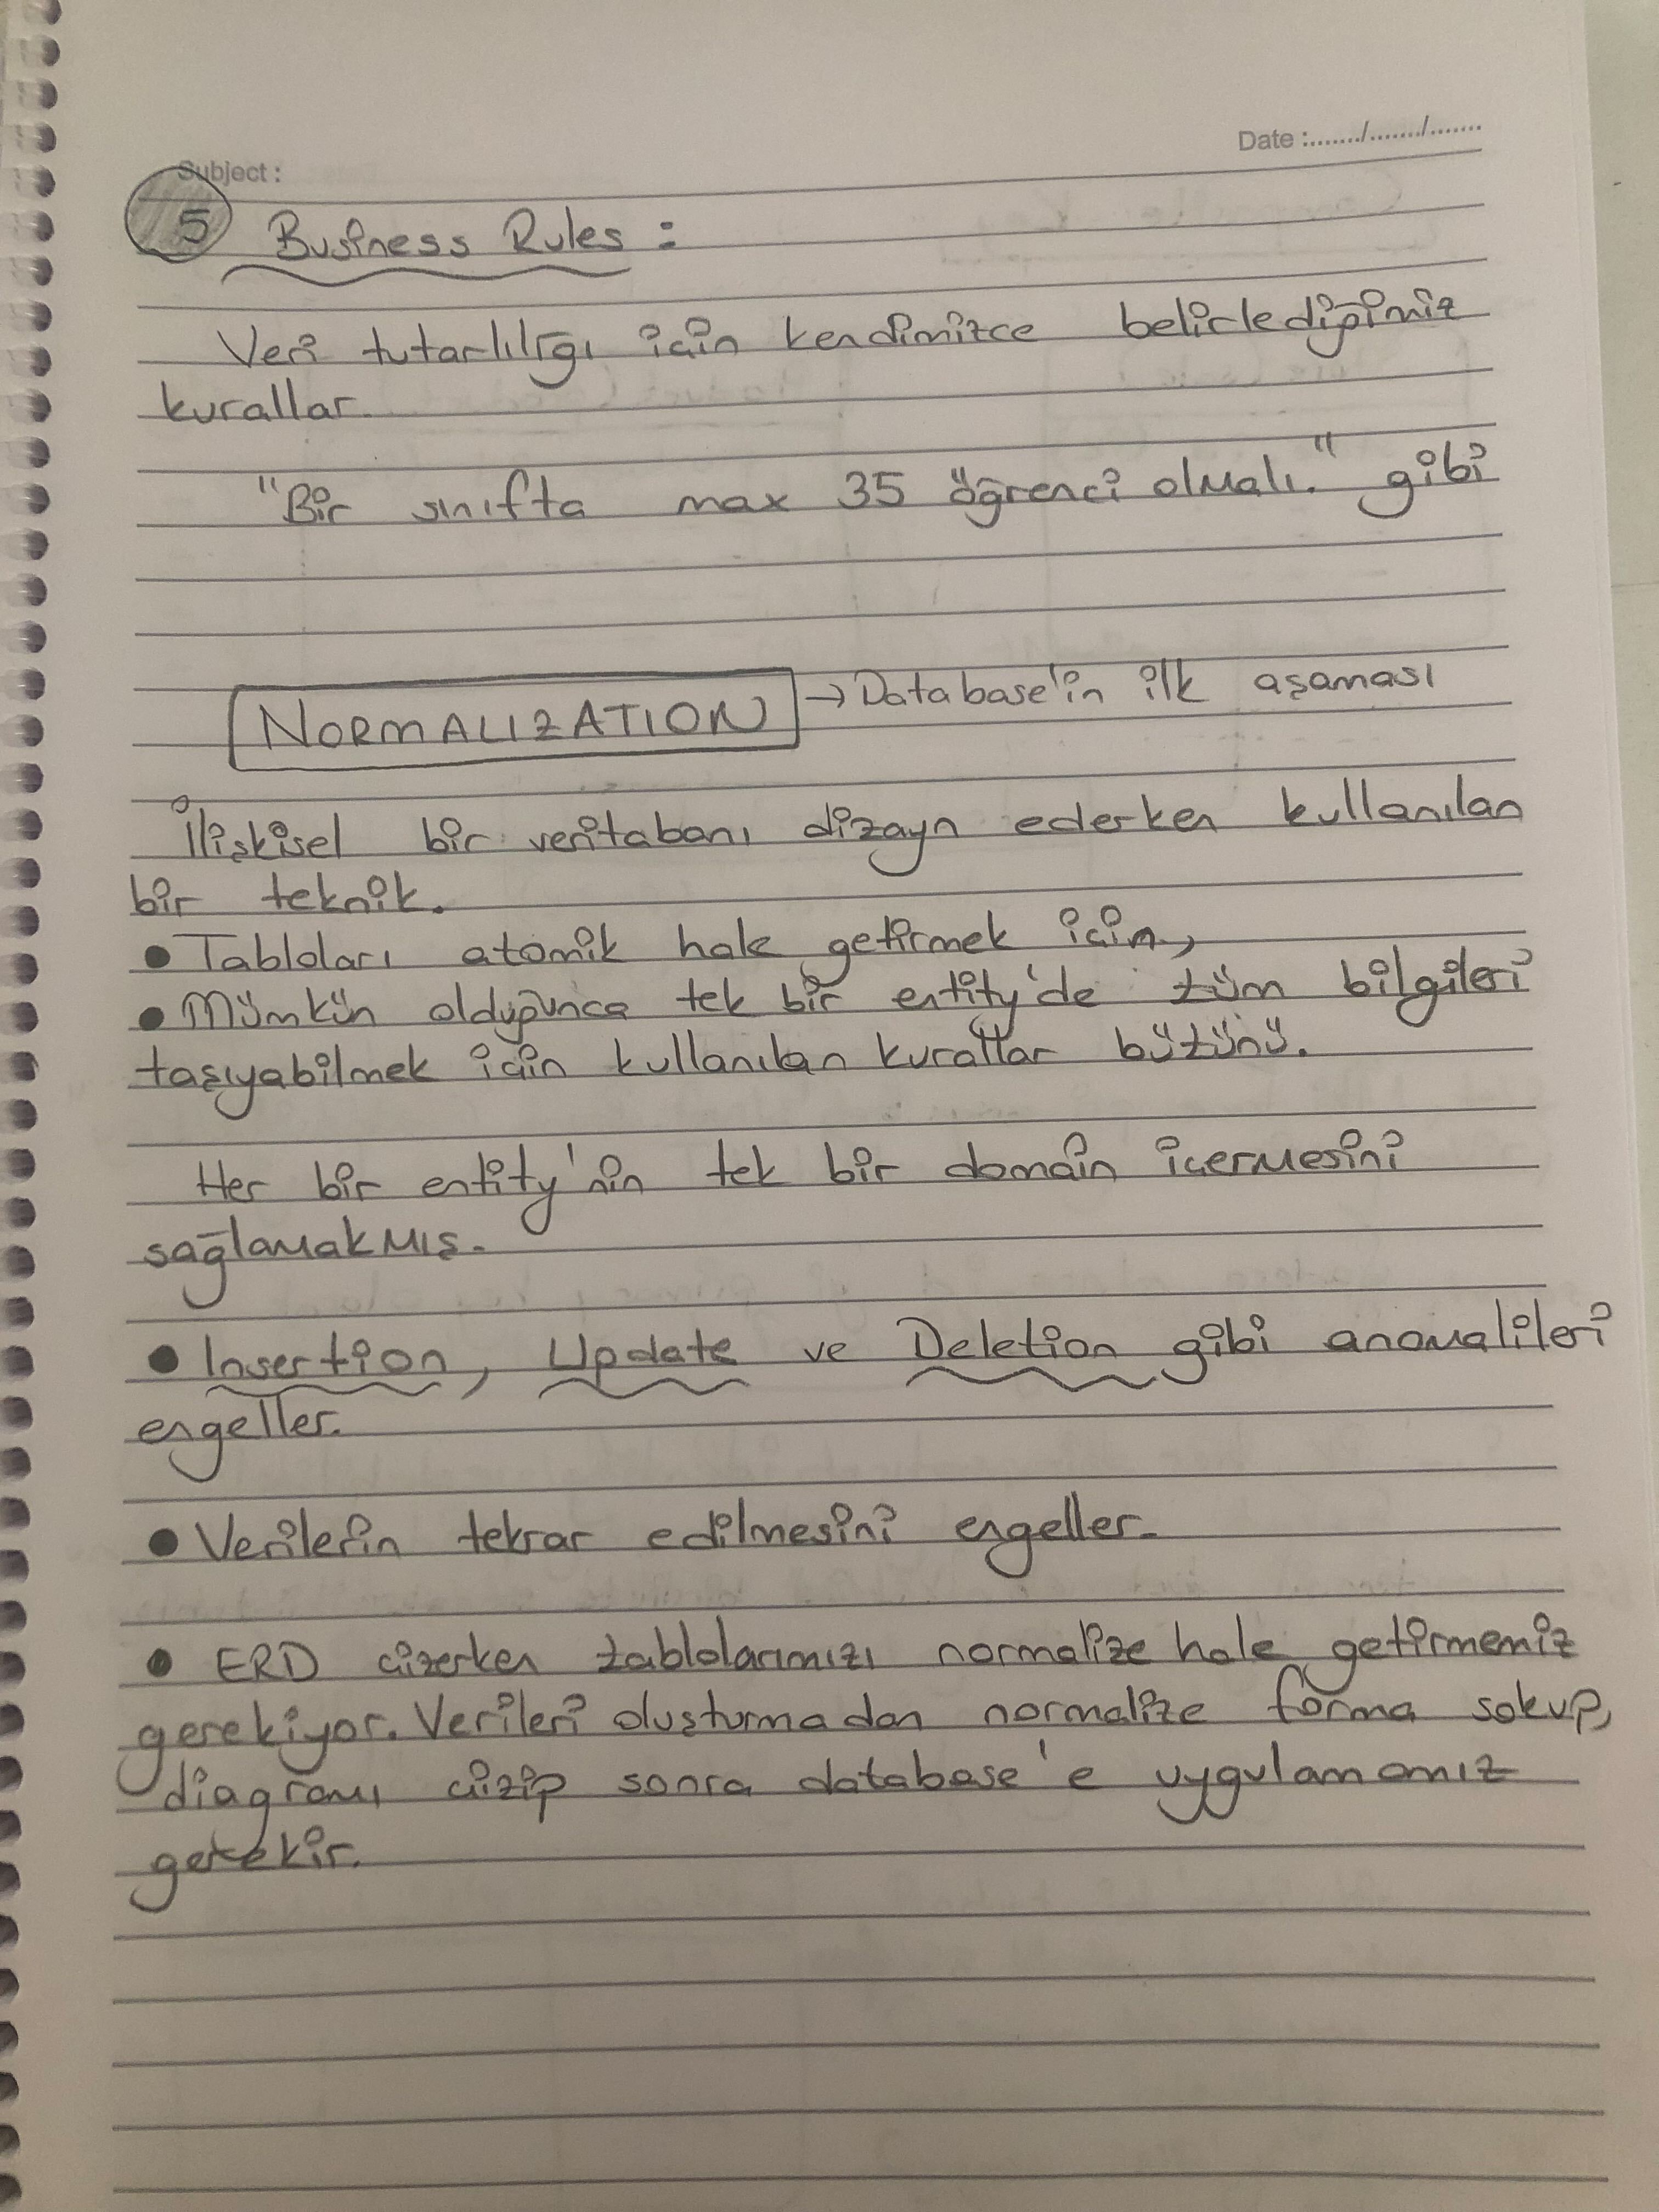 Date :......./......./.......
Subject :
5 Business Rules :
Veri tutarlılığı için kendimizce belirlediğimiz
kurallar.
"Bir sınıfta max 35 öğrenci olmalı." gibi
NORMALIZATION → Database'in ilk aşaması
İlişkisel bir veritabanı dizayn ederken kullanılan
bir teknik.
● Tabloları atomik hale getirmek için,
● Mümkün olduğunca tek bir entity'de tüm bilgileri
taşıyabilmek için kullanılan kurallar bütünü.
Her bir entity'nin tek bir domain içermesini
sağlamakmış.
● Insertion, Update ve Deletion gibi anomalileri
engeller.
● Verilerin tekrar edilmesini engeller.
● ERD çizerken tablolarımızı normalize hale getirmemiz
gerekiyor. Verileri oluşturmadan normalize forma sokup,
diagramı çizip sonra database'e uygulamamız
gerekir.